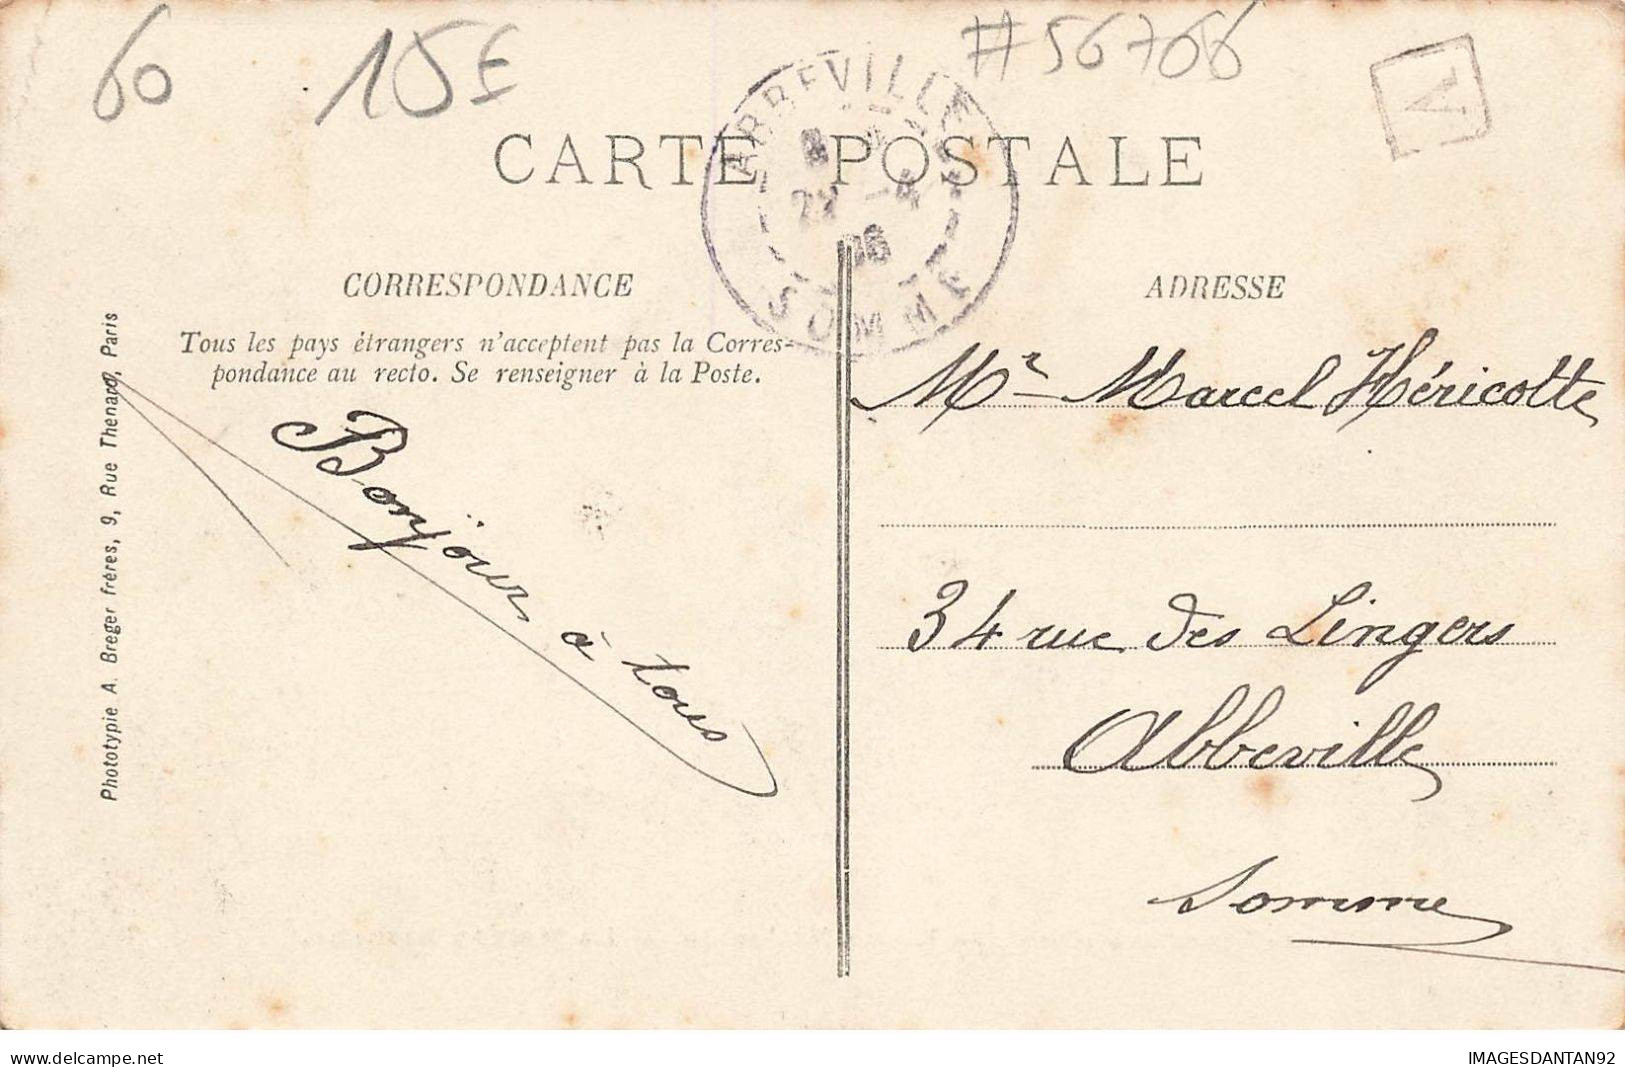 60
15E
#56706
A
ABBEVILLE
SOMME
CARTE POSTALE
CORRESPONDANCE
Tous les pays étrangers n'acceptent pas la Corres-
pondance au recto. Se renseigner à la Poste.
Phototypie A. Breger frères, 9, Rue Thenard, Paris
Bonjour à tous
ADRESSE
Mr Marcel Héricotte
34 rue des Lingers
Abbeville
Somme
delcampe.net
IMAGESDANTAN92